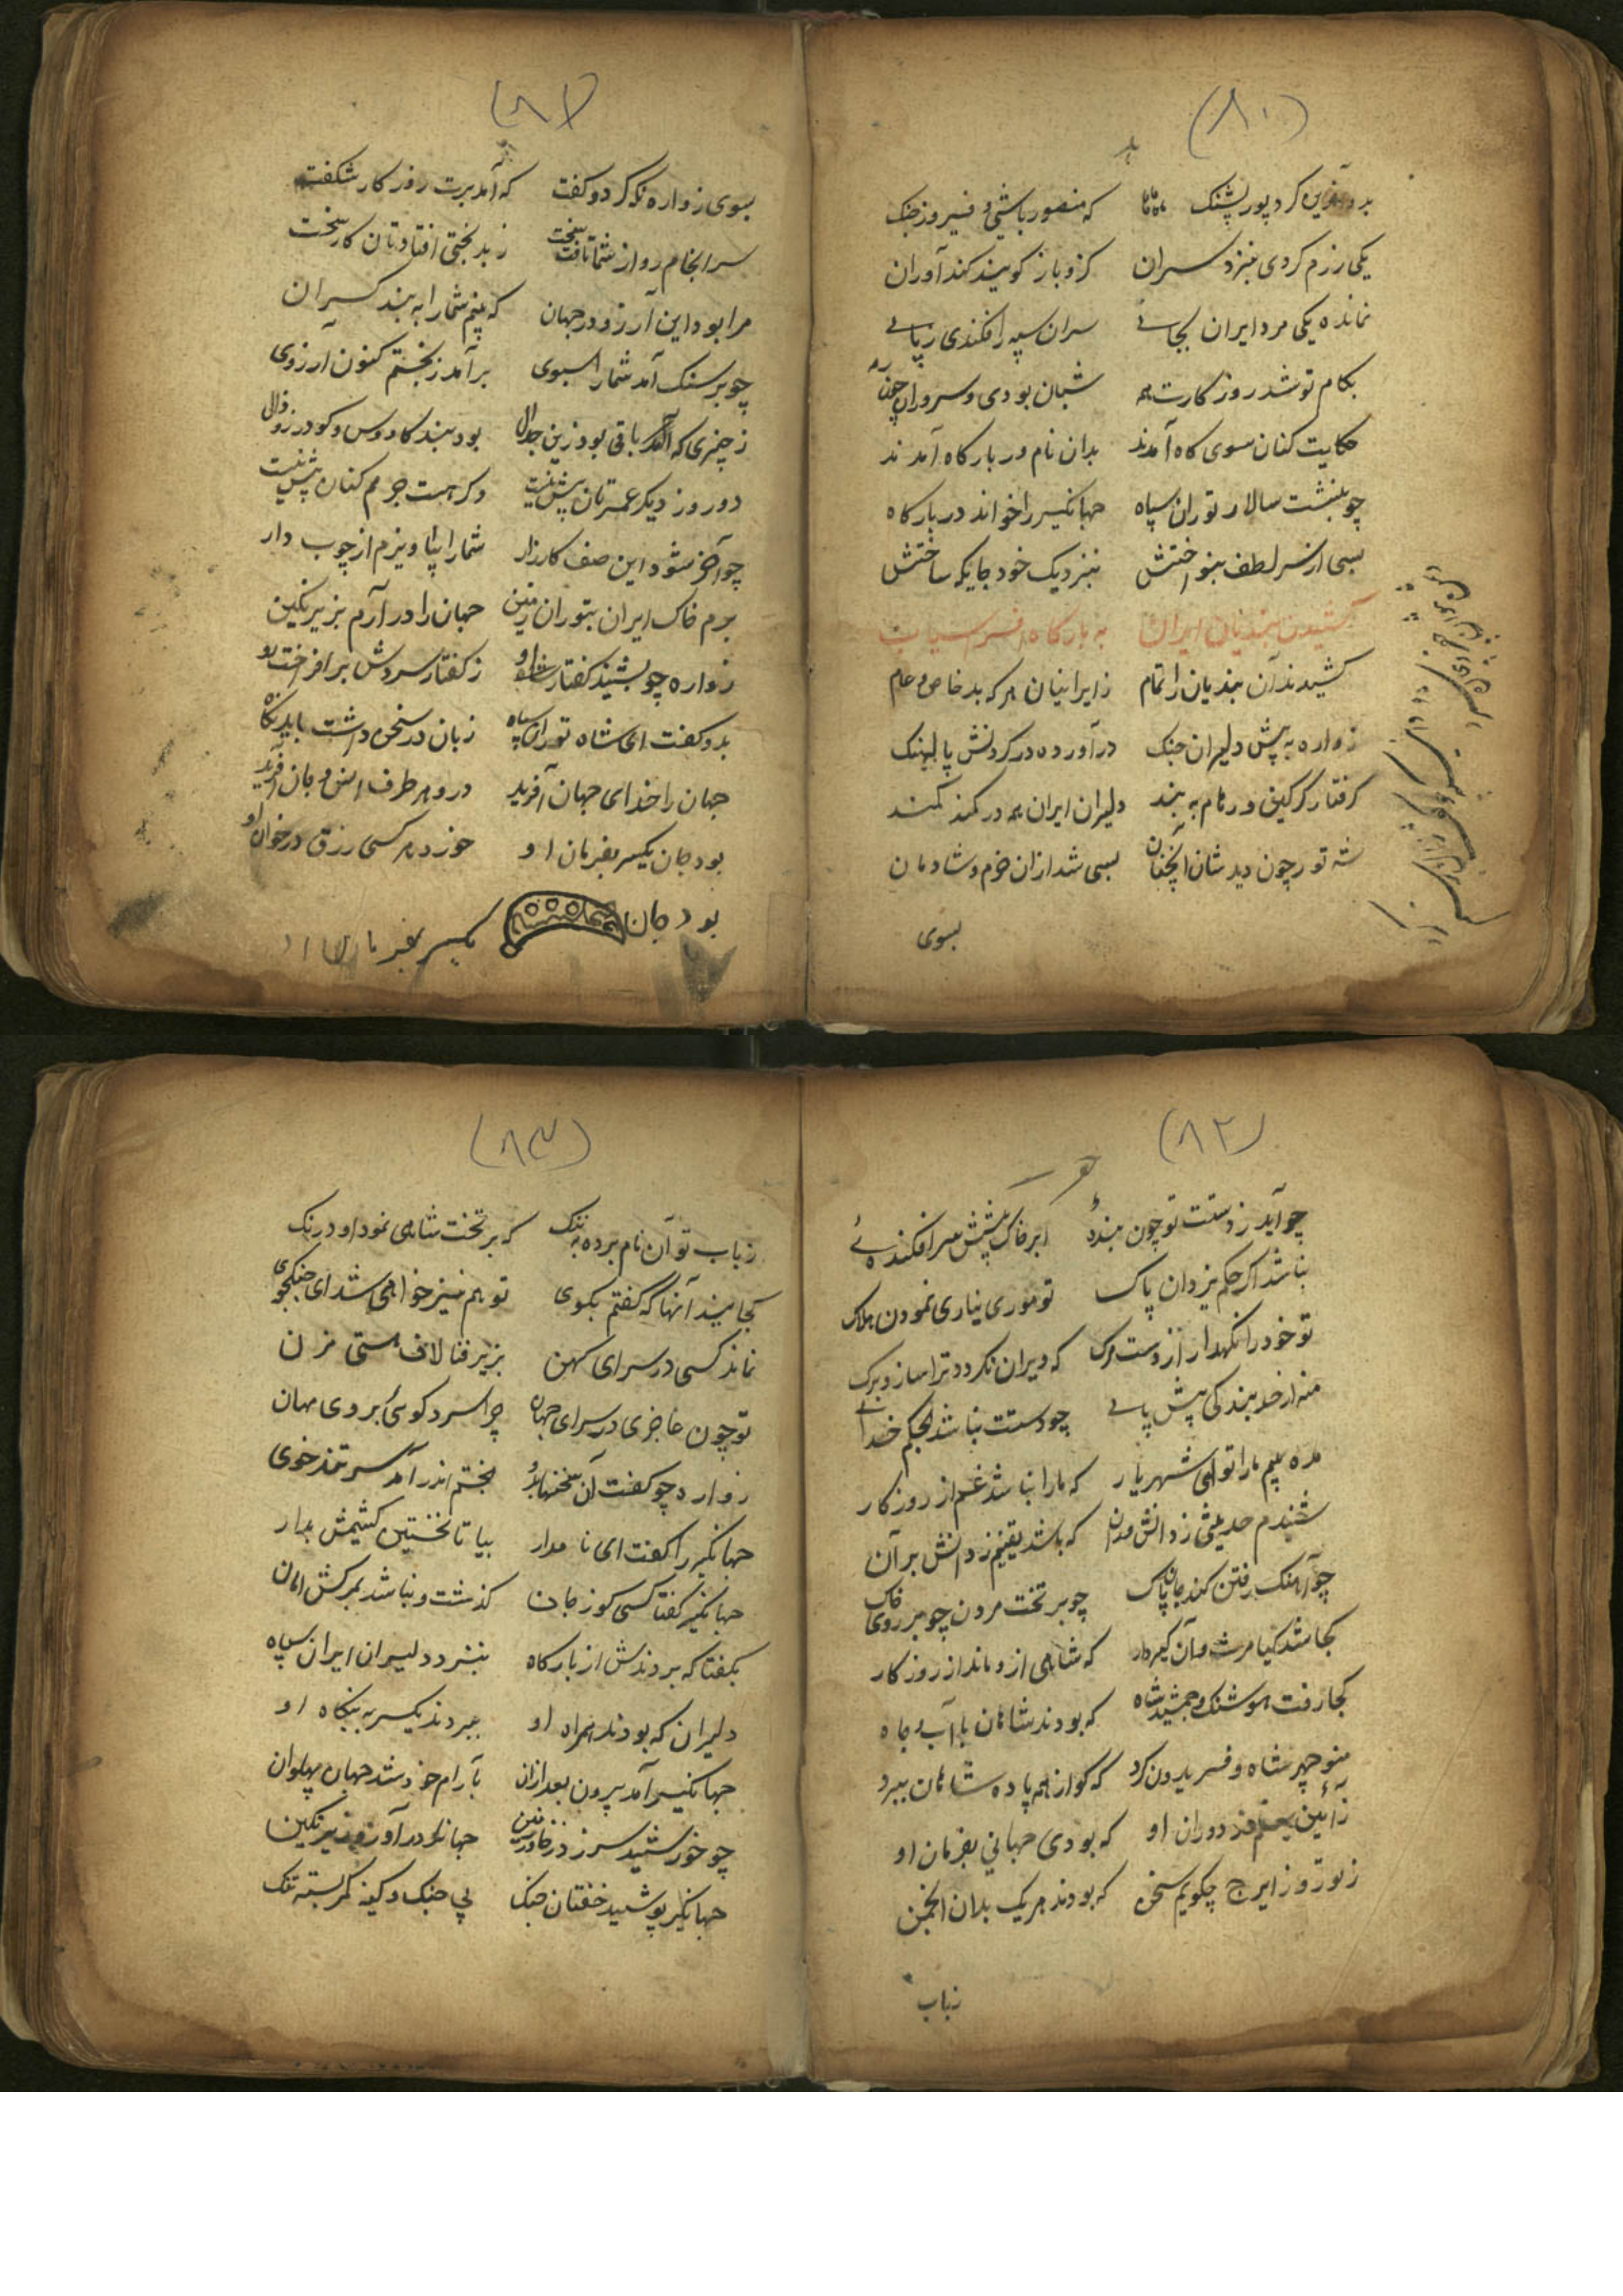 (۸۰)
بدو آفرین کرد پور پشنک که منصور باشی و فیروز جنک
یکی رزم کردی بنزد سران کزو باز کویند کند آوران
نمانده یکی مرد ایران بجای سران سپه را فکندی ز پای
بکام تو شد روز کارت همه شبان بودی و سروران چون رمه
حکایت کنان سوی کاه آمدند بدان نام ور بارکاه آمدند
چو بنشست سالار توران سپاه جهانکیر را خواند در بارکاه
بسی از سر لطف بنواختش بنزدیک خود جایکه ساختش
کشیدن بندیان ایران به بارکاه افراسیاب
کشیدند آن بندیان را تمام ز ایرانیان هر که بد خاص و عام
زواره به پیش دلیران جنک در آورده در کردنش پالهنک
کرفتار کرکین و رهام به بند دلیران ایران همه در کمند
شه تور چون دید شان آنچنان بسی شد ازان خرم و شادمان
بسوی
(۸۱)
بسوی زواره نکه کرد و کفت که آمد برت روز کار شکفت
سرانجام رو از شما تافت بخت ز بد بختی افتادتان کار سخت
مرا بود این آرزو در جهان که بینم شما را به بند کران
چو بر سنک آمد شما را سبوی برآمد ز بختم کنون آرزوی
ز چیزی که باقی بود زین جدال بود بند کاوس و کودرز و زال
دو روز دیکر عمرتان بیش نیست وکر هست جرمم کنان بیش نیست
چو آخر شود این صف کارزار شما را بیاویزم از چوب دار
برم خاک ایران بتوران زمین جهان را در آرم بزیر نکین
زواره چو بشنید کفتار او ز کفتار سردش برافروخت رو
بدو کفت ای شاه توران سپاه زبان در سخن داشت باید نکاه
جهان را خدای جهان آفرید درو هر طرف انس و جان آفرید
بود جان یکسر بفرمان او خورد هر کسی رزق در خوان او
بود جان یکسر بفرمان او
(۸۲)
چو آید ز دستت تو چون بندهٔ ابر خاک پیشش سر افکندهٔ
نباشد اکر حکم یزدان پاک تو موری نیاری نمودن هلاک
تو خود را نکهدار از دست مرک که ویران نکردد ترا ساز و برک
منه از حد بندکی پیش پای چو دستت نباشد بحکم خدای
مده بیم ما را تو ای شهریار که ما را نباشد غم از روزکار
شنیدم حدیثی ز دانش وران که باشد یقینم ز دانش بر آن
چو آهنک رفتن کند جان پاک چو بر تخت مردن چو بر روی خاک
کجا شد کیامرث و آن کیر دار که شاهی ازو ماند از روزکار
کجا رفت هوشنک و جمشید شاه که بودند شاهان با آب و جاه
منوچهر شاه و فریدون کرد که کو از همه پاده شاهان ببرد
ز آئین دوران او که بودی جهانی بفرمان او
ز تور و ز ایرج چکویم سخن که بودند هر یک بدان انجمن
زباب
(۸۳)
زباب تو آن نام برده به ننک که بر تخت شاهی نمود او درنک
کجایند آنها که کفتم بکوی تو هم نیز خواهی شد ای جنکجوی
نماند کسی در سرای کهن بزیر فنا لاف هستی مزن
تو چون عاجزی در سرای جهان چرا سرد کوئی بروی مهان
زواره چو کفت آن سخنها بدو بخشم اندر آمد سر تند خوی
جهانکیر را کفت ای نامدار بیا تا نخستین کشیمش بدار
جهانکیر کفتا کسی کو ز جان کذشت و نباشد بمرکش امان
بکفتا که بردندش از بارکاه بنزد دلیران ایران سپاه
دلیران که بودند همراه او ببردند یکسر به بنکاه او
جهانکیر آمد بیرون بعد ازان بآرام خود شد جهان پهلوان
چو خورشید سر زد ز خاور زمین جهان در آورد زیر نکین
جهانکیر پوشید خفتان جنک پی جنک و کینه کمر بسته تنک